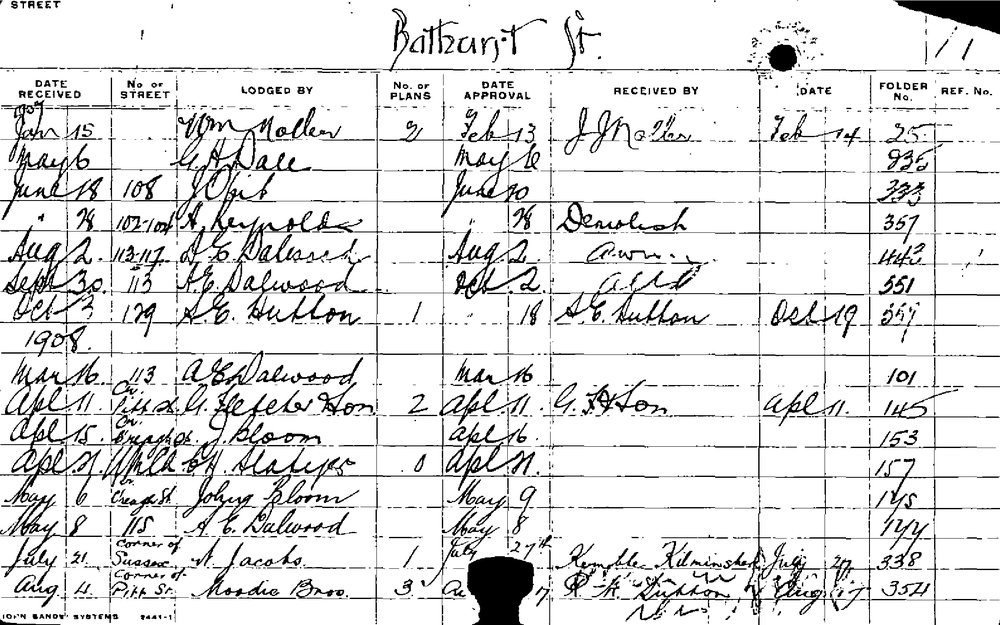 STREET
Bathurst St.
DATE RECEIVED No. OF STREET LODGED BY No. OF PLANS DATE APPROVAL RECEIVED BY DATE FOLDER No. REF. No.
Jan 15 Wm Noller 2 Feb 13 J J Noller Feb 14 25
May 6 G. H. Dale May 6 235
June 18 108 June 20 333
" 28 102-104 A. Reynolds " 28 Demolish 357
Aug 2. 113-117 A. E. Dalwood Aug 2. 442
Sept 30. 113 A. E. Dalwood Oct 2. 551
Oct 3 129 S. E. Hutton 1 " 18 S. E. Hutton Oct 19
1908.
Mar 16. 113 A E Dalwood Mar 16 101
Apl 11. Cn. Pitt St G. Fletcher & Son 2 Apl. 11. G. F & Son Apl 11. 145
Apl 15. Cn. Creagh St. J. Bloom Apl 16. 153
Apl 21. 0 Apl 21. 157
May 6 Cn. Creagh St. John Bloom May 9 175
May 8 115 A. E. Dalwood May 8 177
July 21. Corner of Sussex Jacobs. 1. July 27th Kemble Kilminster July 27 338
Aug 4. Corner of Pitt St. Moodie Bros. 3 17 Aug 17 354
JOHN SANDS' SYSTEMS 2441-1